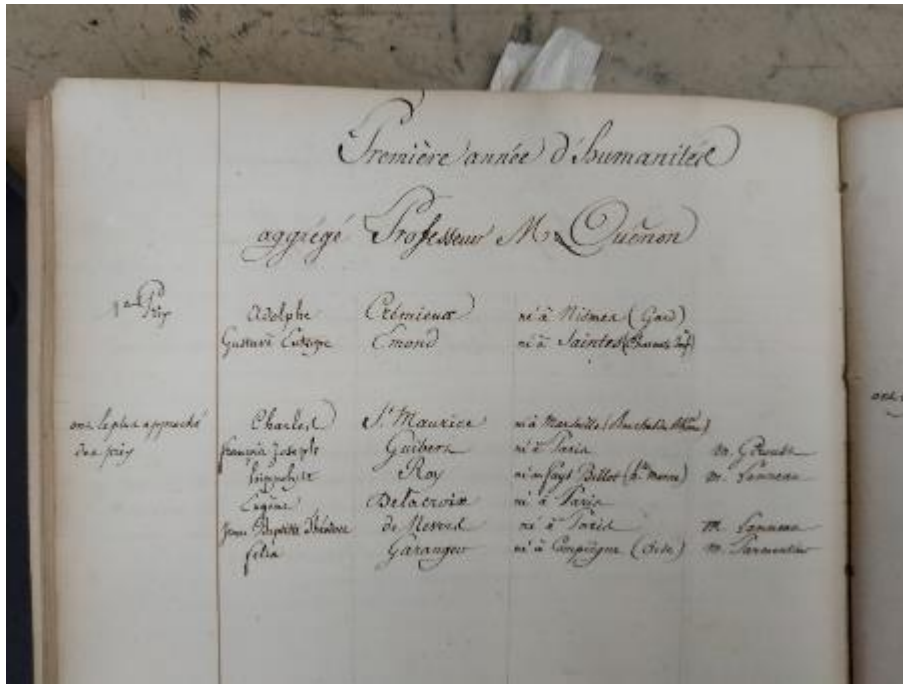 Première année d'humanités
aggrégé Professeur Mr. Quenon
1er Prix Adolphe Crémieux né à Nismes (Gard)
Gustave Emond né à Saintes
ont le plus approché Charles St. Maurice né à Marseille (Bouches du Rhône)
des prix françois Joseph Guibert né à Paris m.
hippolyte Roy né au Fays Billot (hte. Marne) m. Lanneau
Eugène Delacroix né à Paris
Jean Baptiste Théodore de né à Paris m. Lanneau
felix Garangeu né à Compiègne (Oise) m. Parmentier